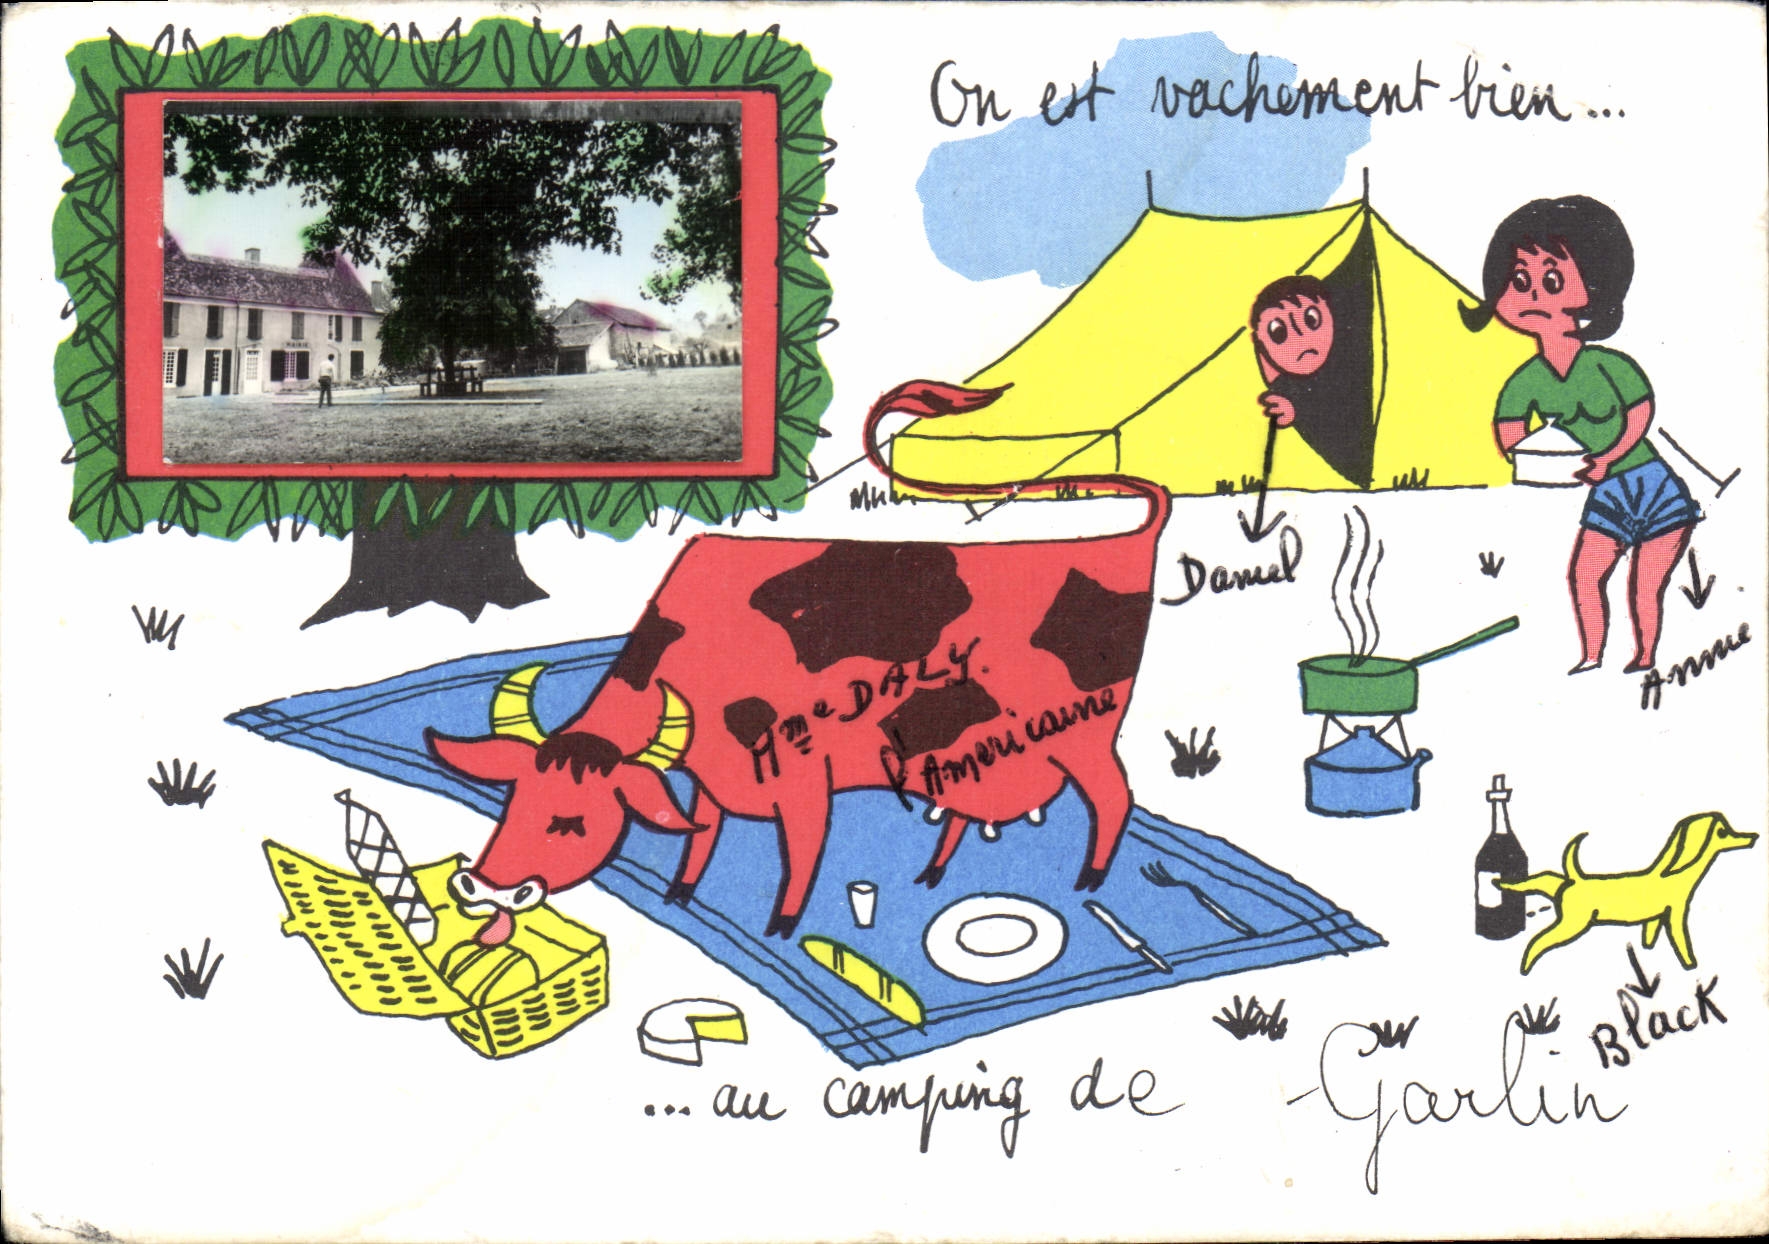 On est vachement bien...
MAIRIE
Daniel
Annie
Mme DALY.
l'Americaine
Black
...au camping de Garlin